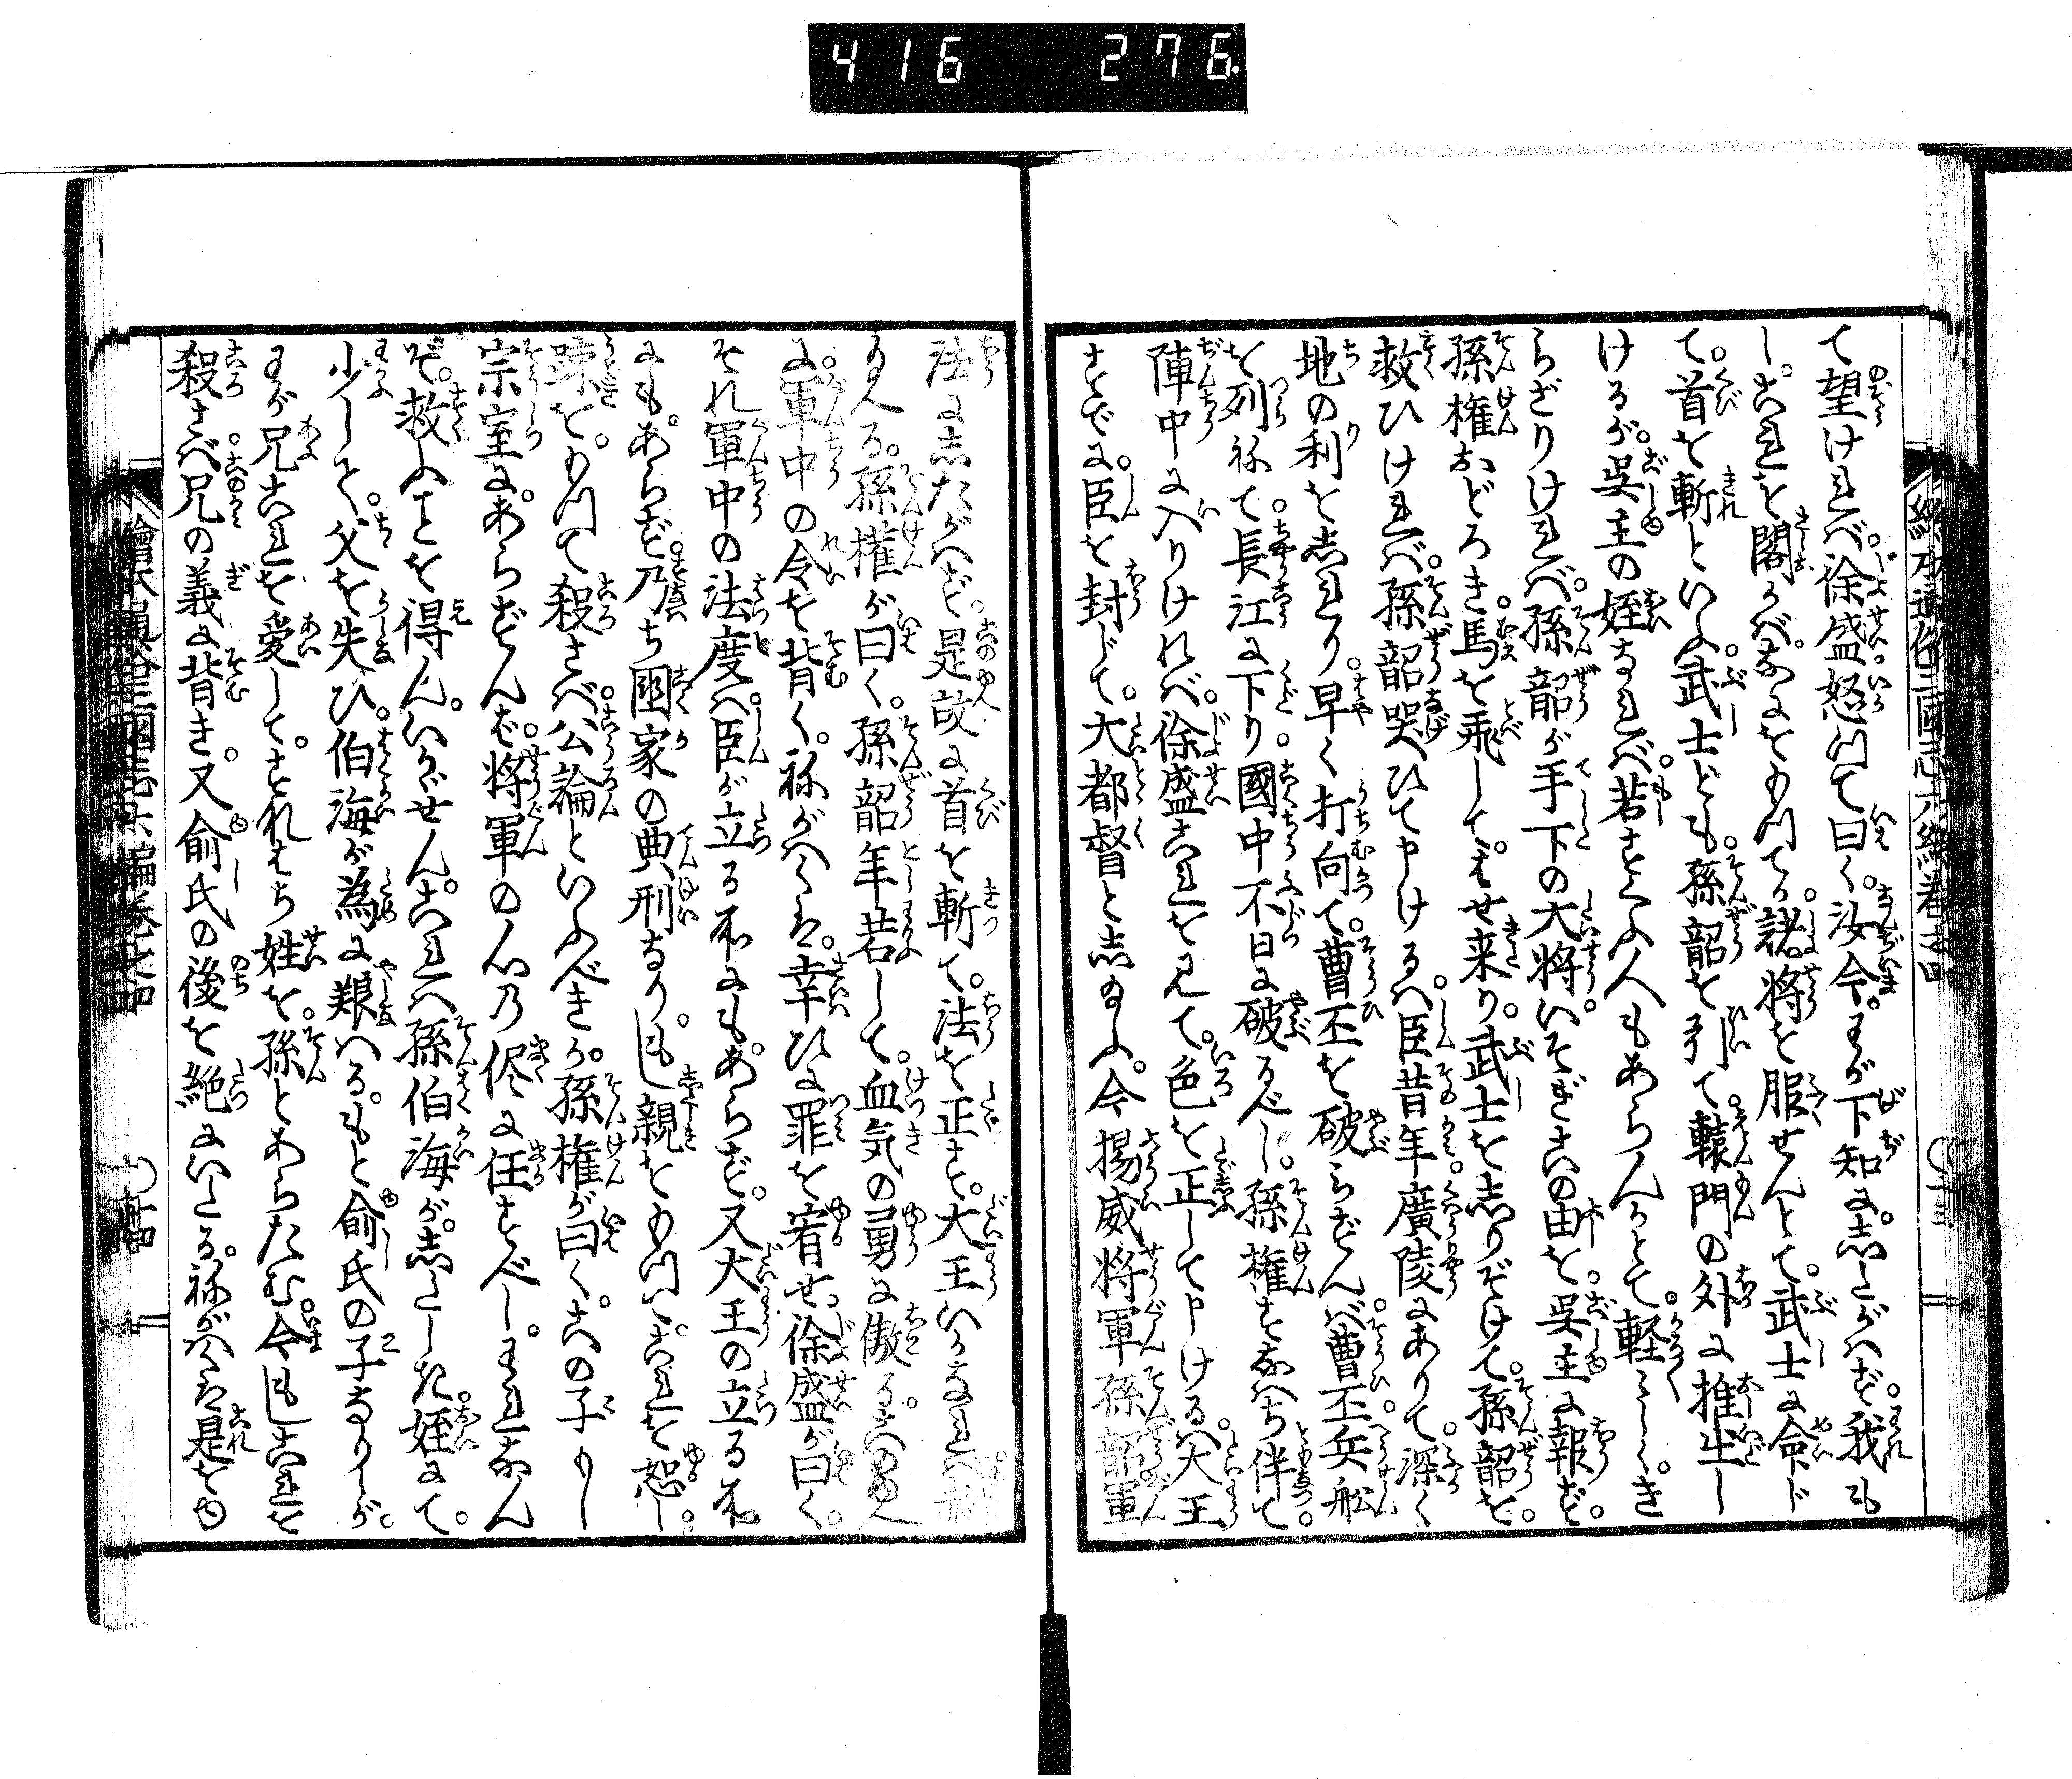 416 276
て望けれバ。徐盛怒つて曰く。汝今。わが下知に。志たがハず。我も
し。これを閣かバ。なにをもつてか。諸将を服せんとて。武士に命ド
て。首を斬といふ。武士ども。孫韶を引て。轅門の外に推出し
けるが。呉主の姪なれバ。若さとふ人もあらんかとて。軽〱しくき
らざりけれバ。孫韶が手下の大将。いそぎこの由を。呉主に報ず。
孫権おどろき。馬を飛して。はせ来り。武士を志りぞけて。孫韶を。
救ひけれバ。孫韶哭ひて申けるハ。臣昔年。廣陵にありて。深く
地の利を志れり。早く打向て。曹丕を破らずんバ。曹丕兵舩
を列ねて。長江に下り。國中不日に破るべし。孫権すなハち伴て。
陣中に入りけれバ。徐盛これを見て。色を正して申けるハ。大王
すでに。臣を封じて。大都督と志給ふ。今揚威将軍孫韶。軍
法に志たがハず。是故に首を斬て。法を正す。大王いかなれバ赦
給へる。孫權が曰く。孫韶年若して。血気の勇に傲る。
に。軍中の令を背く。祢がハくハ。幸ひに罪を宥せ。徐盛が曰く。
それ軍中の法度ハ。臣が立る所にもあらず。又大王の立る所
にも。あらず。乃ち國家の典刑なり。もし親をもつて。これを恕し。
疎を。もつて殺さバ。公論といふべきか。孫権が曰く。この子もし
宗室に。あらずんば。将軍の心乃侭に任すべし。われなん
ぞ。救ふことを得ん。いかゞせん。これハ孫伯海が。志たしき。姪にて。
少して。父を失ひ。伯海が為に艱ハる。もと俞氏の子なりしが。
わが兄これを愛して。すなハち姓を。孫とあらたむ。今もしこれを
殺さバ。兄の義に背き。又俞氏の後を絶にいたる。祢がハくハ是をゆ
繪本通俗三國志六編巻之四